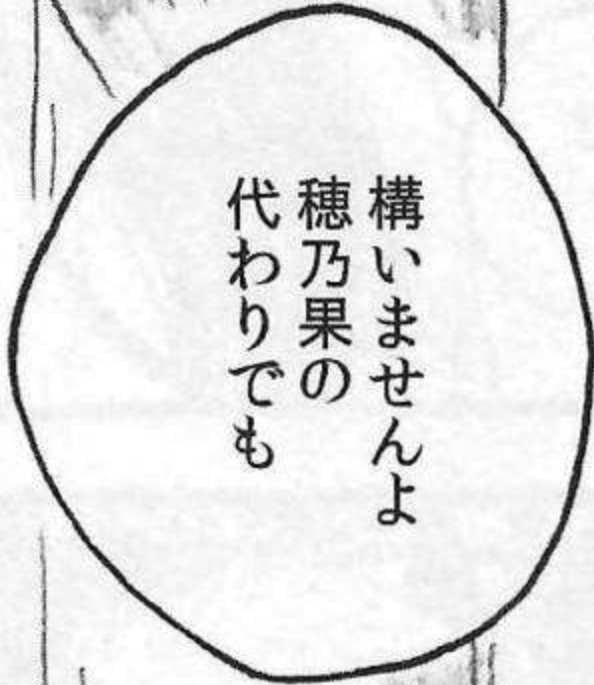 構いませんよ
穂乃果の
代わりでも